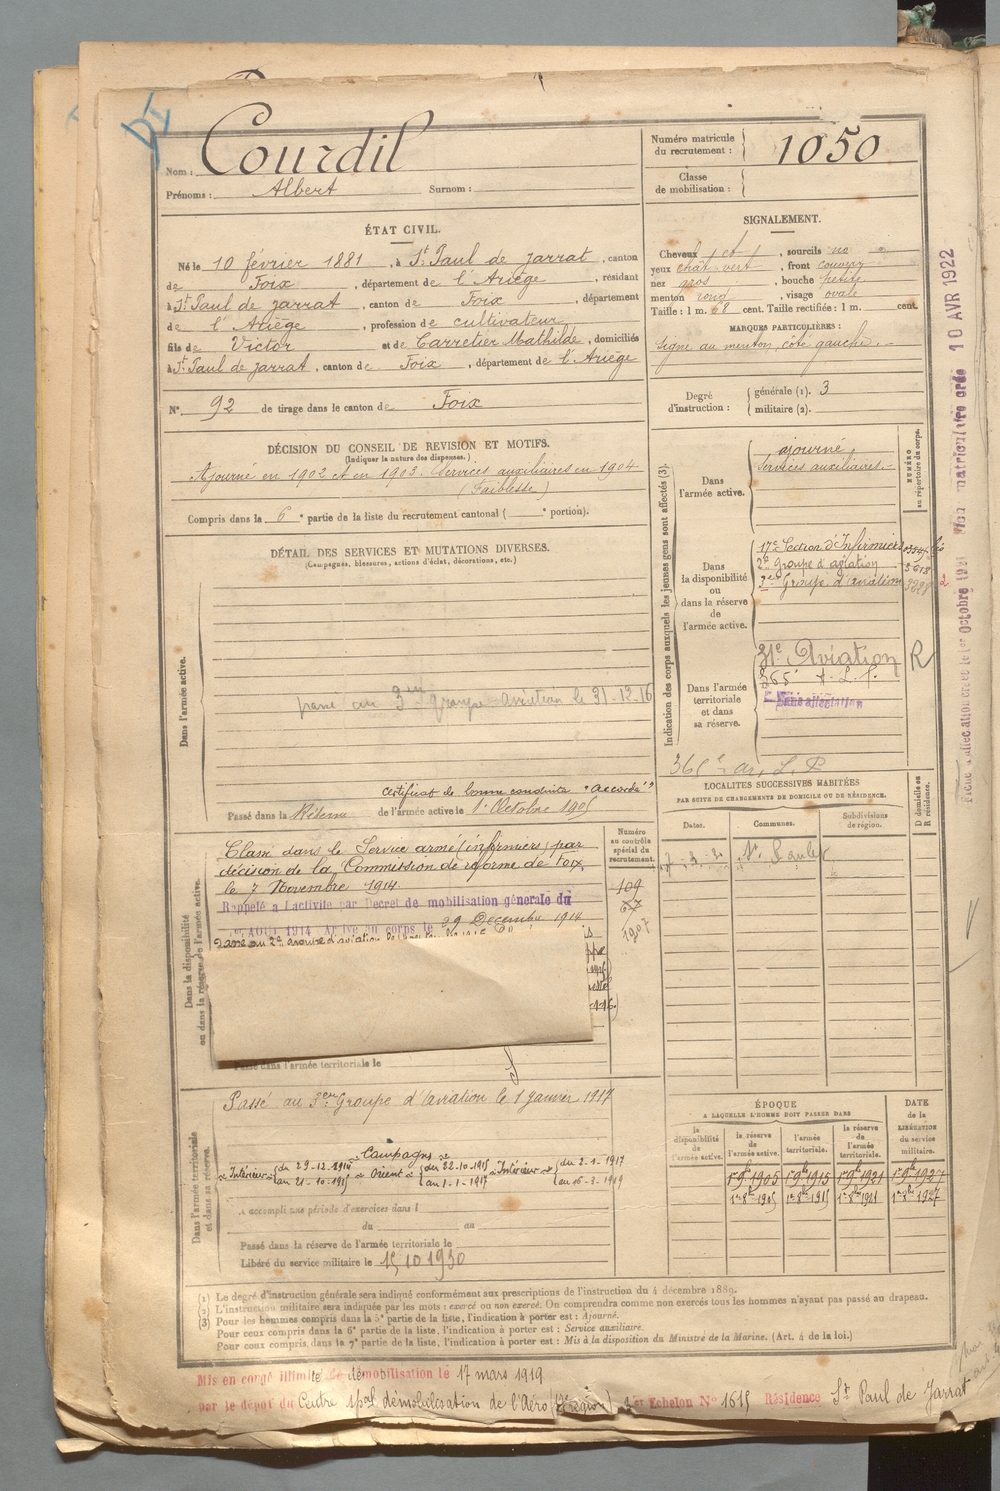 Courdil
Nom :
Prénoms : Albert Surnom :
Numéro matricule du recrutement : 1050
Classe de mobilisation :
ÉTAT CIVIL.
Né le 10 février 1881, à St Paul de Jarrat, canton
de Foix, département de l'Ariège, résidant
à St Paul de Jarrat, canton de Foix, département
de l'Ariège, profession de cultivateur
fils de Victor et de Carretier Mathilde, domiciliés
à St Paul de Jarrat, canton de Foix, département de l'Ariège
N° 92 de tirage dans le canton de Foix
SIGNALEMENT.
Cheveux chât, sourcils
yeux chât. vert, front couvert
nez gros, bouche petite
menton rond, visage ovale
Taille : 1 m. 68 cent. Taille rectifiée : 1 m. cent.
MARQUES PARTICULIÈRES :
Signe au menton, côté gauche.
Degré d'instruction : générale (1). 3
militaire (2).
DÉCISION DU CONSEIL DE REVISION ET MOTIFS.
(Indiquer la nature des dispenses.)
Ajourné en 1902 et en 1903. Services auxiliaires en 1904
(Faiblesse)
Compris dans la 6e partie de la liste du recrutement cantonal ( e portion).
DÉTAIL DES SERVICES ET MUTATIONS DIVERSES.
(Campagnes, blessures, actions d'éclat, décorations, etc.)
Dans l'armée active.
passé au 3me groupe aviation le 31-12-16
certificat de bonne conduite "Accordé"
Passé dans la Réserve de l'armée active le 1er Octobre 1905
Indication des corps auxquels les jeunes gens sont affectés (3).
NUMÉRO au répertoire du corps.
Dans l'armée active.
ajourné
Services auxiliaires.
Dans la disponibilité ou dans la réserve de l'armée active.
17e Section d'Infirmiers
2e Groupe d'aviation
3e Groupe d'aviation
Dans l'armée territoriale et dans sa réserve.
31e Aviation R
365e A. L. P.
Sans affectation
LOCALITÉS SUCCESSIVES HABITÉES
PAR SUITE DE CHANGEMENTS DE DOMICILE OU DE RÉSIDENCE.
Dates. Communes. Subdivisions de région. D domicile ou R résidence.
10 AVR 1922
Dans la disponibilité ou dans la réserve de l'armée active.
Numéro au contrôle spécial du recrutement.
Classé dans le Service armé (infirmiers) par
décision de la Commission de réforme de Foix,
le 7 Novembre 1914.
Rappelé à l'activité par Décret de mobilisation générale du
1er AOUT 1914 Arrivé au corps le 29 Décembre 1914
109
1907
Passé dans l'armée territoriale le
Dans l'armée territoriale et dans sa réserve.
Passé au 3eme Groupe d'aviation le 1 Janvier 1917
Campagne
Intérieur du 29-12-1914 au 21-10-1915 Orient du 22-10-1915 au 1-1-1917 Intérieur du 2-1-1917 au 16-3-1919
A accompli une période d'exercices dans l
du au
Passé dans la réserve de l'armée territoriale le
Libéré du service militaire le 15 10 1930
ÉPOQUE
A LAQUELLE L'HOMME DOIT PASSER DANS
la disponibilité de l'armée active. la réserve de l'armée active. l'armée territoriale. la réserve de l'armée territoriale.
DATE de la LIBÉRATION du service militaire.
1er 9bre 1905 1er 9bre 1915 1er 9bre 1921 1er 9bre 1927
1er 8bre 1905 1er 8bre 1915 1er 8bre 1921 1er 8bre 1927
(1) Le degré d'instruction générale sera indiqué conformément aux prescriptions de l'instruction du 4 décembre 1889.
(2) L'instruction militaire sera indiquée par les mots : exercé ou non exercé. On comprendra comme non exercés tous les hommes n'ayant pas passé au drapeau.
(3) Pour les hommes compris dans la 5e partie de la liste, l'indication à porter est : Ajourné.
Pour ceux compris dans la 6e partie de la liste, l'indication à porter est : Service auxiliaire.
Pour ceux compris dans la 7e partie de la liste, l'indication à porter est : Mis à la disposition du Ministre de la Marine. (Art. 4 de la loi.)
Mis en congé illimité de démobilisation le 17 mars 1919
par le dépôt du Centre spal démobilisation de l'Aéro (17e région) 3er Echelon N° 1615 Résidence St Paul de Jarrat